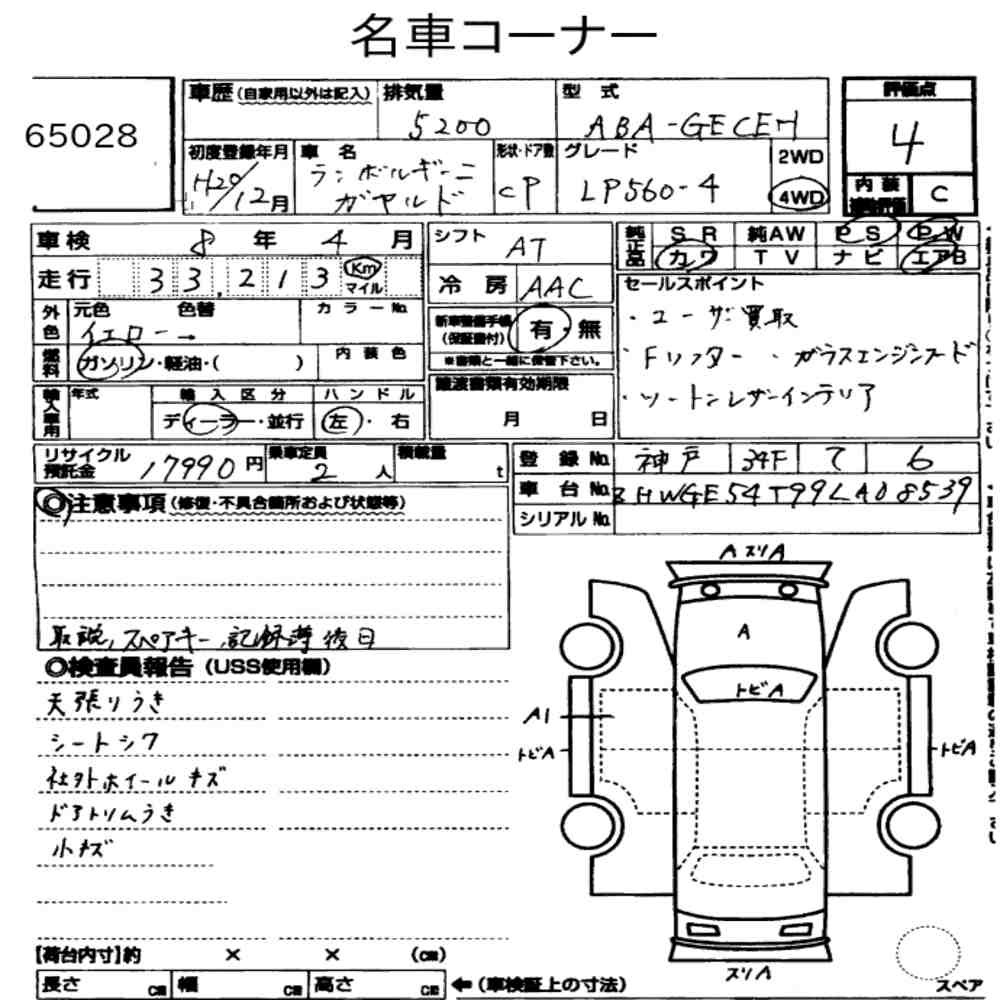 名車コーナー
65028
車歴(自家用以外は記入) 排気量 型式 評価点
5200 ABA-GECEH 4
初度登録年月 車名 形状・ドア数 グレード 2WD
H20/12月 ランボルギーニ ガヤルド CP LP560-4 4WD
内装 C
車検 8年 4月 シフト AT 純正品 SR 純AW PS PW
カワ TV ナビ エアB
走行 33,213 Km マイル 冷房 AAC
セールスポイント
外色 元色 色替 カラーNo.
イエロー→
新車整備手帳(保証書付) 有・無
・ユーザー買取
燃料 ガソリン・軽油・( ) 内装色
※書類と一緒に保管下さい。
・Fリフター ・ガラスエンジンフード
譲渡書類有効期限
・ツートンレザーインテリア
輸入車用 年式 輸入区分 ハンドル
ディーラー・並行 左・右 月 日
リサイクル預託金 17990円 乗車定員 2人 積載量 t
登録No. 神戸 34F て 6
車台No. ZHWGE54T99LA08539
シリアルNo.
◎注意事項(修復・不具合箇所および状態等)
取説、スペアキー、記録簿後日
◎検査員報告(USS使用欄)
天張りうき
シートシワ
社外ホイールキズ
ドアトリムうき
小キズ
AスリA
A
トビA
A1
トビA
トビA
スリA
スペア
【荷台内寸】約 × × (cm)
長さ cm 幅 cm 高さ cm ←(車検証上の寸法)